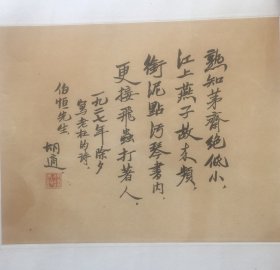 熟知茅齋絕低小，
江上燕子故來頻。
銜泥點污琴書內，
更接飛蟲打著人。
一九二七年除夕
寫老杜的詩。
伯恒先生
胡適